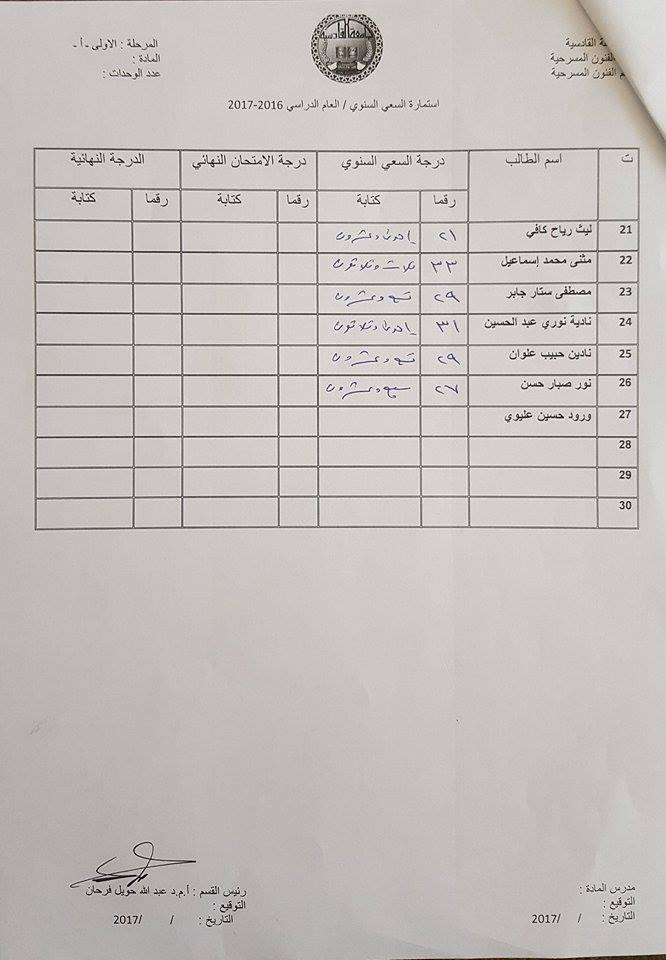 ة القادسية
الفنون المسرحية
م الفنون المسرحية
جامعة القادسية
المرحلة : الاولى - أ -
المادة :
عدد الوحدات :
استمارة السعي السنوي / العام الدراسي 2016-2017
ت اسم الطالب درجة السعي السنوي درجة الامتحان النهائي الدرجة النهائية
رقما كتابة رقما كتابة رقما كتابة
21 ليث رياح كافي ٢١ احدى وعشرون
22 مثنى محمد إسماعيل ٣٣ ثلاث وثلاثون
23 مصطفى ستار جابر ٢٩ تسع وعشرون
24 نادية نوري عبد الحسين ٣١ احدى وثلاثون
25 نادين حبيب علوان ٢٩ تسع وعشرون
26 نور صبار حسن ٢٧ سبع وعشرون
27 ورود حسين عليوي
28
29
30
مدرس المادة :
التوقيع :
التاريخ : / /2017
رئيس القسم : أ.م.د عبد الله حويل فرحان
التوقيع :
التاريخ : / /2017